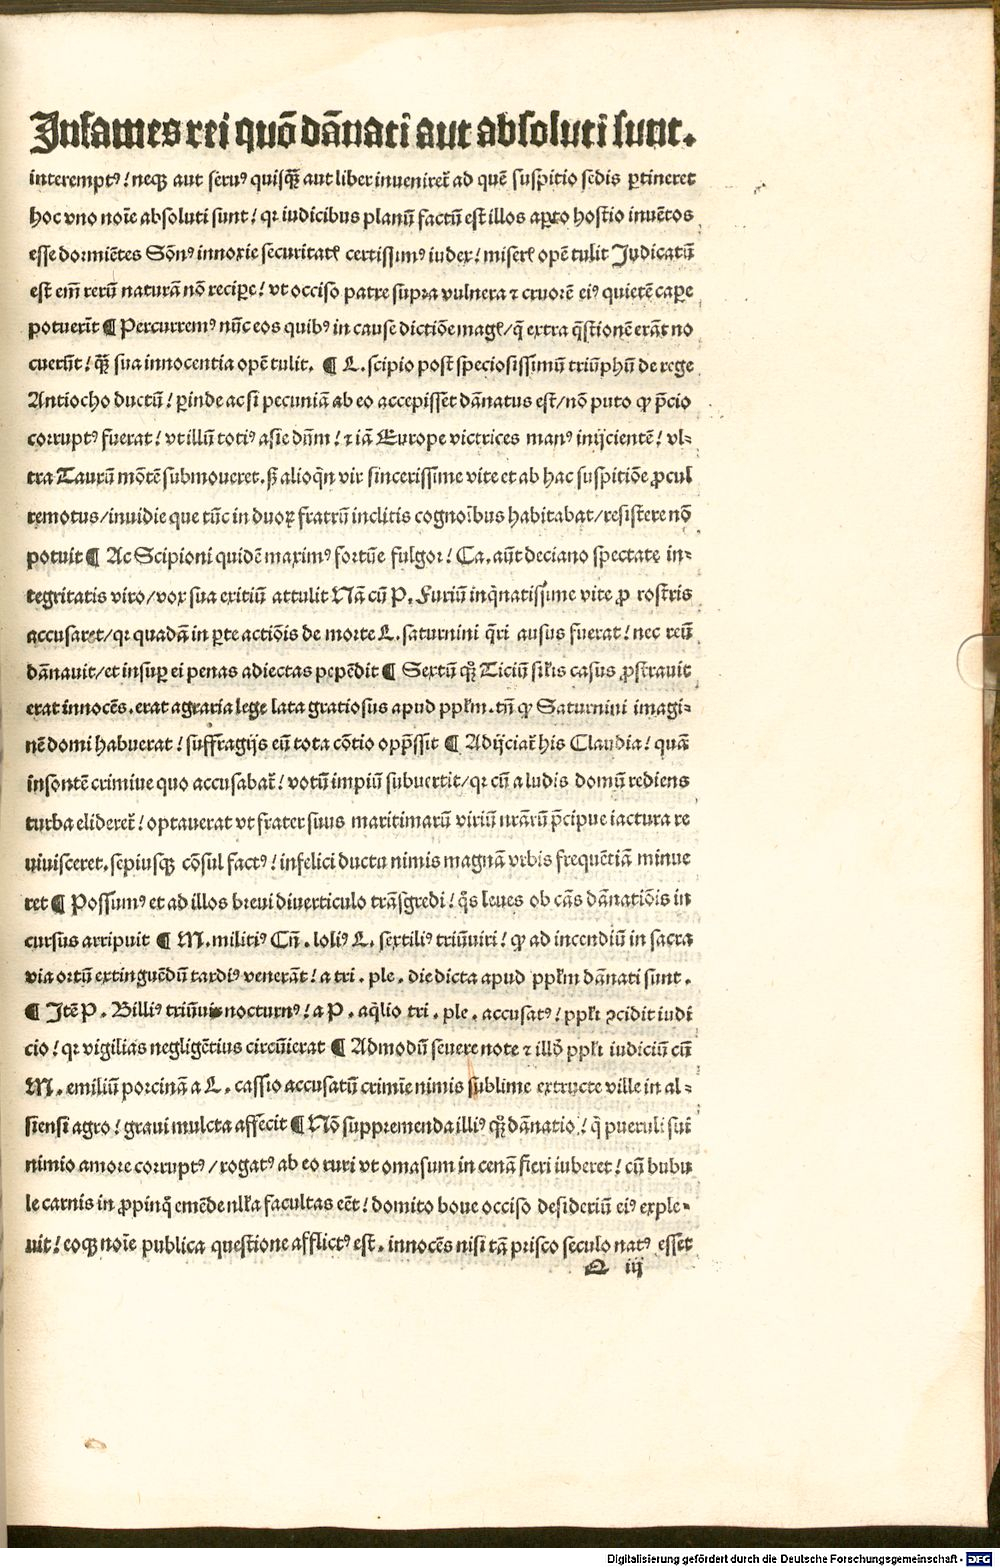 Infames rei quō dānati aut absoluti sunt.
interemptꝰ/ neqꝫ aut seruꝰ quisqꝫ̄ aut liber inuenireť ad quē suspitio sedis ꝑtineret
hoc vno noīe absoluti sunt/ qꝛ iudicibus planū factū est illos aꝑto hostio inuētos
esse dormiētes Sōnꝰ innoxie securitatꝭ certissimꝰ iudex/ miserꝭ opē tulit Judicatū
est em̄ rerū naturā nō reciꝑe/ vt occiso patre supra vulnera ⁊ cruorē eiꝰ quietē caꝑe
potuerīt ¶ Percurremꝰ nūc eos quibꝰ in cause dictiōe magꝭ/ q̄ extra q̄stionē erāt no
cuerūt/ qꝫ̄ sua innocentia opē tulit. ¶ L. scipio post speciosissimū triūphū de rege
Antiocho ductū/ ꝑinde ac si pecuniā ab eo accepisset dānatus est/ nō puto ꝙ p̄cio
corruptꝰ fuerat/ vt illū totiꝰ asie dn̄m/ ⁊ iā Europe victrices manꝰ inijcientē/ vl⸗
tra Taurū mōtē submoueret. sꝫ alioqͥn vir sincerissime vite et ab hac suspitiōe ꝓcul
remotus/ inuidie que tūc in duoꝝ fratrū inclitis cognoībus habitabat/ resistere nō
potuit ¶ Ac Scipioni quidē maximꝰ fortūe fulgor/ Ca. aūt deciano spectate in⸗
tegritatis viro/ vox sua exitiū attulit Nā cū P. Furiū inqͥnatissime vite ꝓ rostris
accusaret/ qꝛ quadā in ꝑte actiōis de morte L. saturnini q̄ri ausus fuerat/ nec reū
dānauit/ et insuꝑ ei penas adiectas pepēdit ¶ Sextū qꝫ Ticiū sił̄is casus ꝓstrauit
erat innocēs. erat agraria lege lata gratiosus apud ppł̄m. tn̄ ꝙ Saturnini imagi⸗
nē domi habuerat/ suffragijs eū tota cōtio opp̄ssit ¶ Adijciať his Claudia/ quā
insontē crimine quo accusabať/ votū impiū subuertit/ qꝛ cū a ludis domū rediens
turba elidereť/ optauerat vt frater suus maritimarū viriū nr̄arū p̄cipue iactura re
uiuisceret. sepiusqꝫ cōsul factꝰ/ infelici ductu nimis magnā vrbis frequētiā minue
ret ¶ Possumꝰ et ad illos breui diuerticulo trāsgredi/ qͦs leues ob cās dānatiōis in
cursus arripuit ¶ M. militiꝰ Cn̄. loliꝰ L. sextiliꝰ triūuiri/ ꝙ ad incendiū in sacra
via ortū extinguēdū tardiꝰ venerāt/ a tri. ple. die dicta apud ppł̄m dānati sunt.
¶ Itē P. Billiꝰ triūuir nocturnꝰ/ a P. aqͥlio tri. ple. accusatꝰ/ ppł̄i ꝯcidit iudi
cio/ qꝛ vigilias negligētius circūierat ¶ Admodū seuere note ⁊ illd̄ ppł̄i iudiciū cū
M. emiliū porcinā a L. cassio accusatū crimīe nimis sublime extructe ville in al⸗
siensi agro/ graui mulcta affecit ¶ Nō supprimenda illiꝰ qꝫ dānatio/ q̄ pueruli sui
nimio amore corruptꝰ/ rogatꝰ ab eo ruri vt omasum in cenā fieri iuberet/ cū bubu
le carnis in ꝓpinqͦ emēde nł̄la facultas eēt/ domito boue occiso desideriū eiꝰ exple⸗
uit/ eoqꝫ noīe publica questione afflictꝰ est. innocēs nisi tā prisco seculo natꝰ esset
Q iij
Digitalisierung gefördert durch die Deutsche Forschungsgemeinschaft - DFG